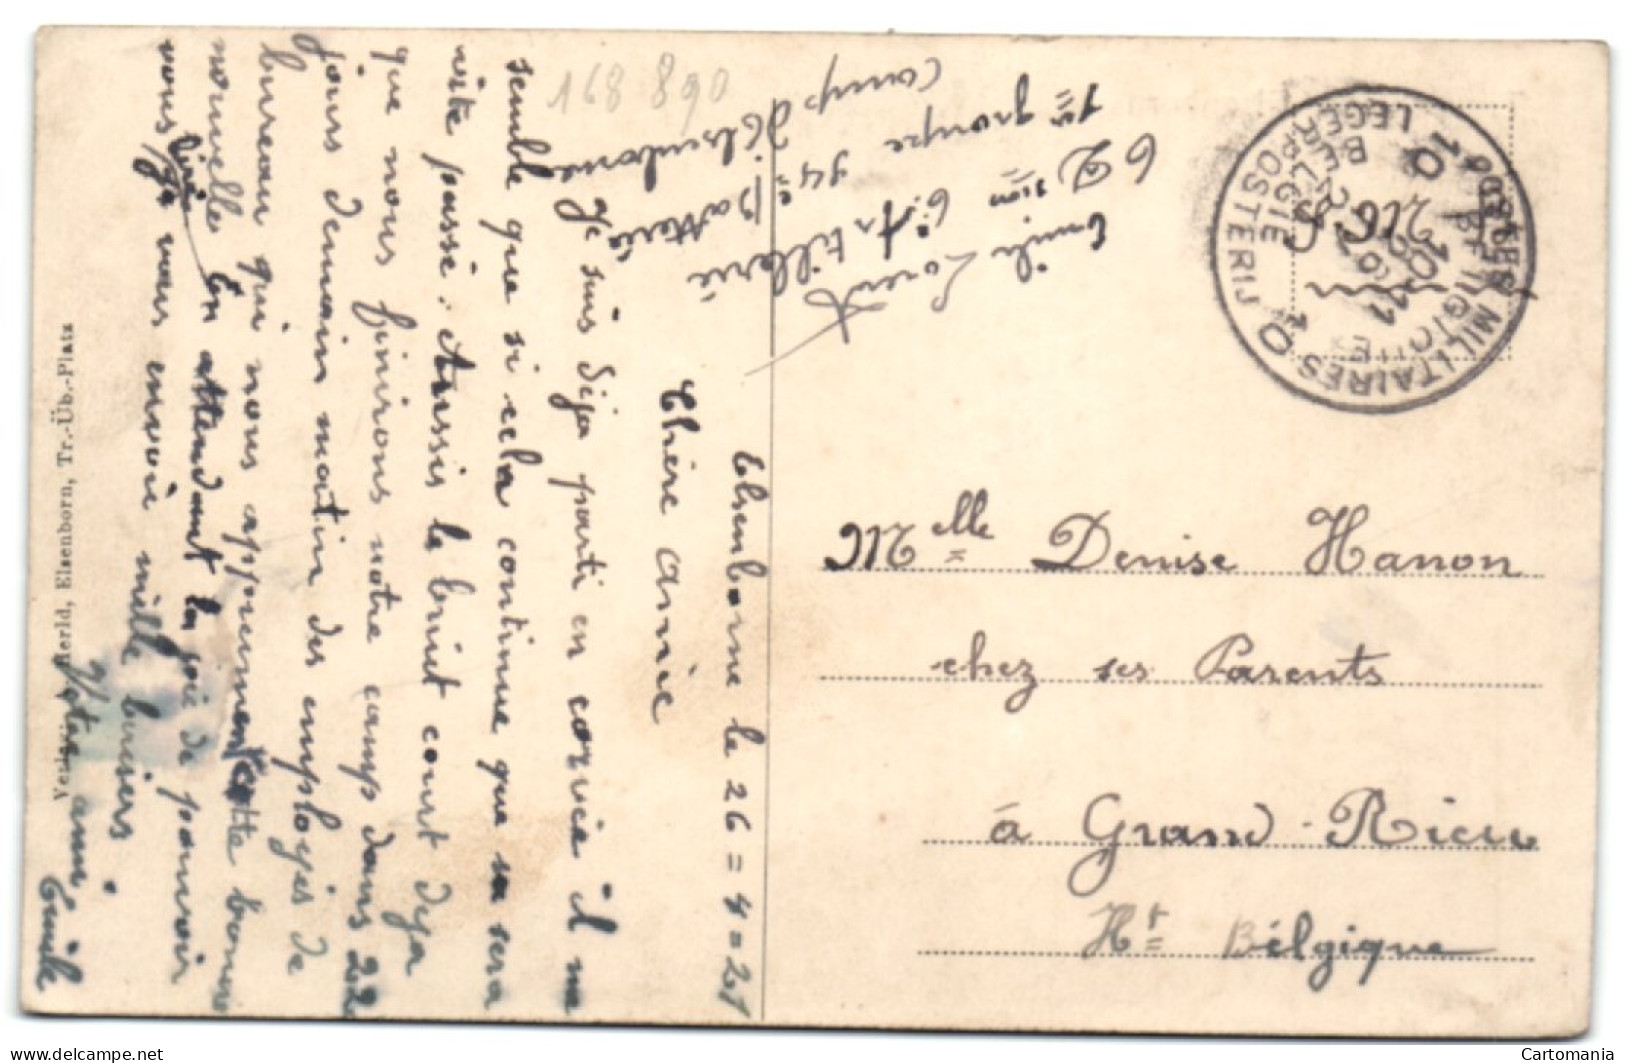 Elsenborne le 26=4=21
Chère amie
Je suis dija parti en corvié il me
semble que si cela continue que sa sera
vite passé. Aussis le bruit court deja
que nous finirons notre camp dans 22
jours demain matin des employés de
bureau qui nous apprennent cette bonne
nouvelle En attendant la joie de pouvoir
vous
je vous envoie mille baisers
Votre ami
Emile
Emile Lorent
6 D.sion 6.e Artillerie
1er groupe 94=e batterie
camp d'Elsenborne
168 890
Melle Denise Hanon
chez ses Parents
à Grand-Rieu
Ht Bélgique
POSTES MILITAIRES
BELGIQUE
LEGERPOSTERIJ
BELGIE
10
Herld, Elsenborn, Tr.-Üb.-Platz
www.delcampe.net
Cartomania